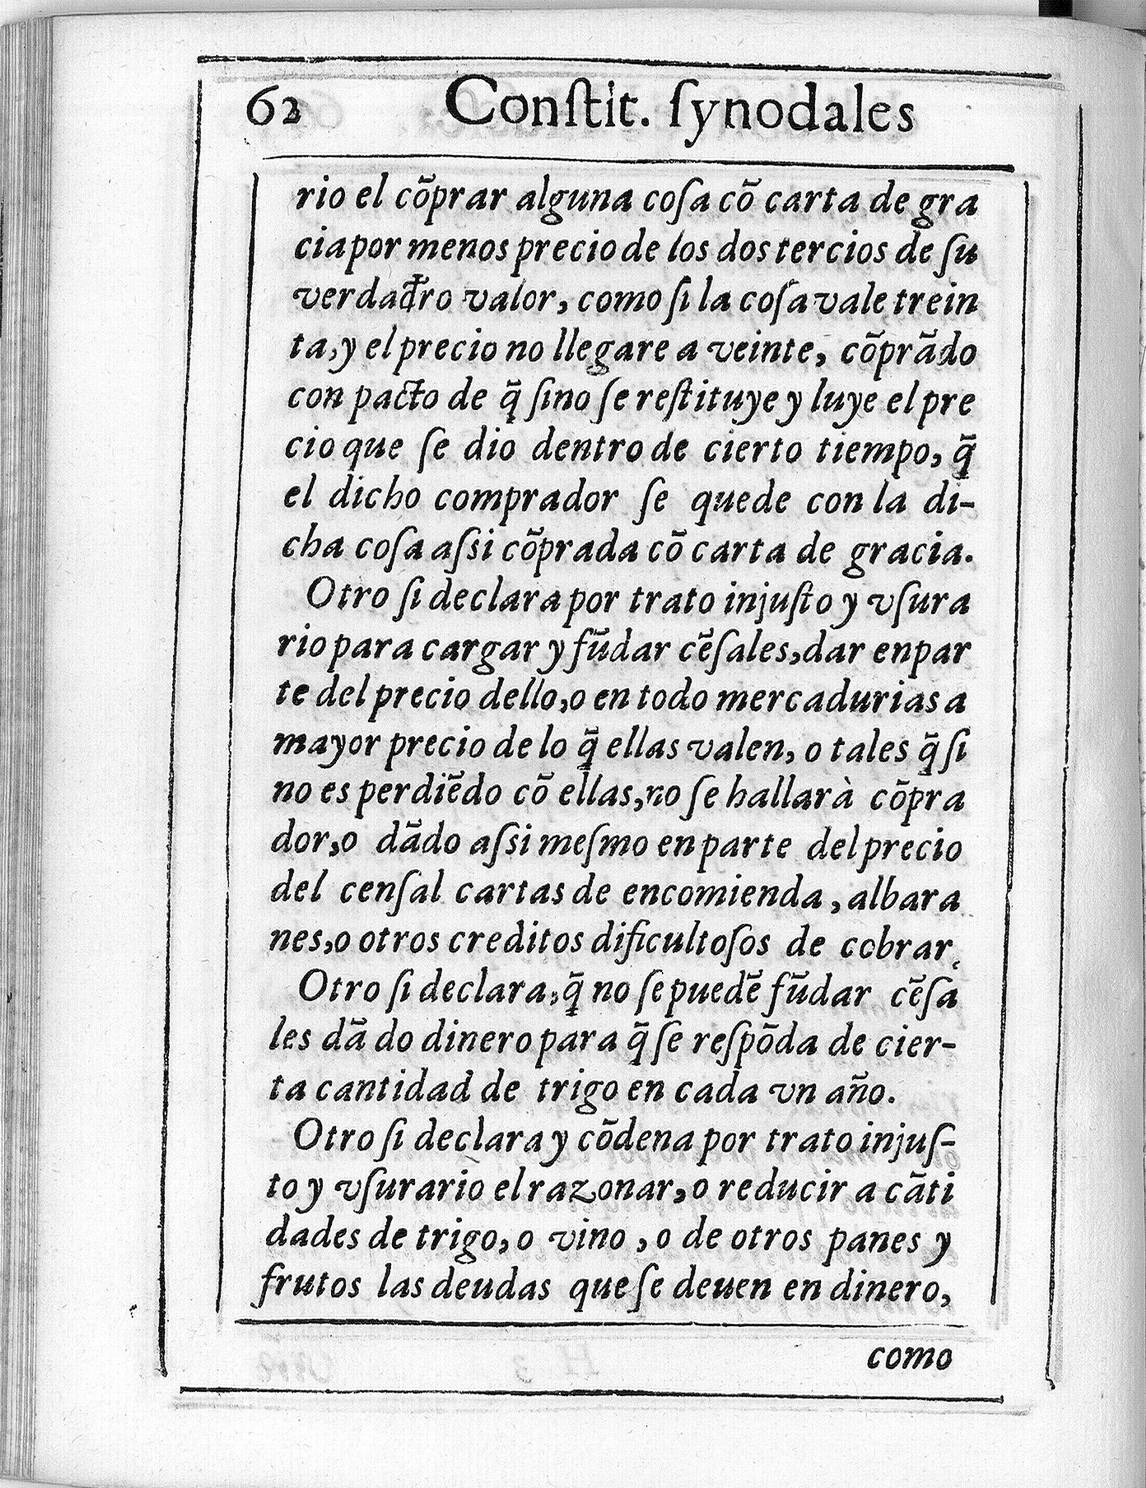 62 Conſtit. ſynodales
rio el cõprar alguna coſa cõ carta de gra
cia por menos precio de los dos tercios de ſu
verdad̃ro valor, como ſi la coſa vale trein
ta, y el precio no llegare a veinte, cõprãdo
con pacto de q̃ ſino ſe reſtituye y luye el pre
cio que ſe dio dentro de cierto tiempo, q̃
el dicho comprador ſe quede con la di-
cha coſa aſsi cõprada cõ carta de gracia.
Otro ſi declara por trato injuſto y vſura
rio para cargar y fũdar cẽſales, dar en par
te del precio dello, o en todo mercadurias a
mayor precio de lo q̃ ellas valen, o tales q̃ ſi
no es perdiẽdo cõ ellas, no ſe hallarà cõpra
dor, o dãdo aſsi meſmo en parte del precio
del cenſal cartas de encomienda, albara
nes, o otros creditos dificultoſos de cobrar.
Otro ſi declara, q̃ no ſe puedẽ fũdar cẽſa
les dã do dinero para q̃ ſe reſpõda de cier-
ta cantidad de trigo en cada vn año.
Otro ſi declara y cõdena por trato injuſ-
to y vſurario el razonar, o reducir a cãti
dades de trigo, o vino, o de otros panes y
frutos las deudas que ſe deuen en dinero,
como